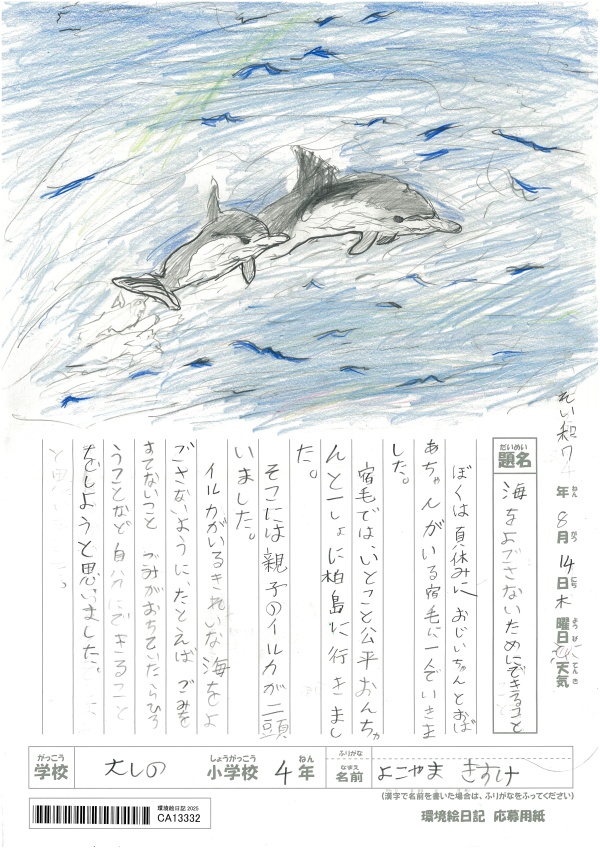 れい和7年8月14日木曜日 天気
ねん
がつ
にち
ようび
てんき
だいめい
題名
海をよごさないためにできること
ぼくは夏休みに おじいちゃんとおば
あちゃんがいる宿毛に一人でいきま
した。
宿毛では、いとこと公平おんちゃ
んと一しょに柏島に行きまし
た。
そこには親子のイルカが二頭
いました。
イルカがいるきれいな海をよ
ごさないように、たとえば ごみを
すてないこと ごみがおちていたらひろ
うことなど自分にできること
をしようと思いました。
がっこう
学校
大しの
しょうがっこう
小学校
4
ねん
年
ふりがな
なまえ
名前
よこやま きすけ
(漢字で名前を書いた場合は、ふりがなをふってください)
環境絵日記 2025
CA13332
環境絵日記 応募用紙